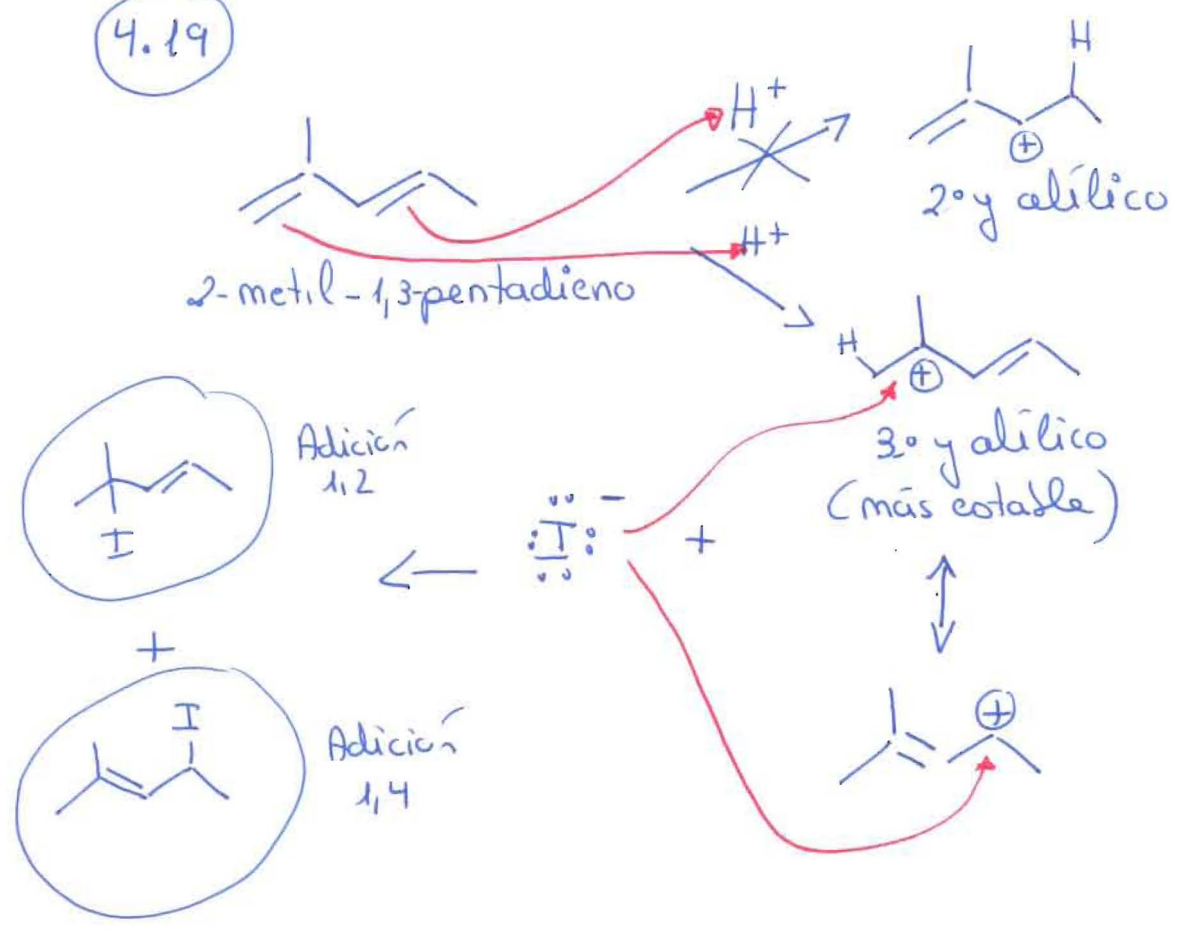 4.19
H
H+
⊕
2º y alílico
H+
2-metil-1,3-pentadieno
H
⊕
3º y alílico
(más estable)
Adición
1,2
I
:I: -
+
+
I
⊕
Adición
1,4